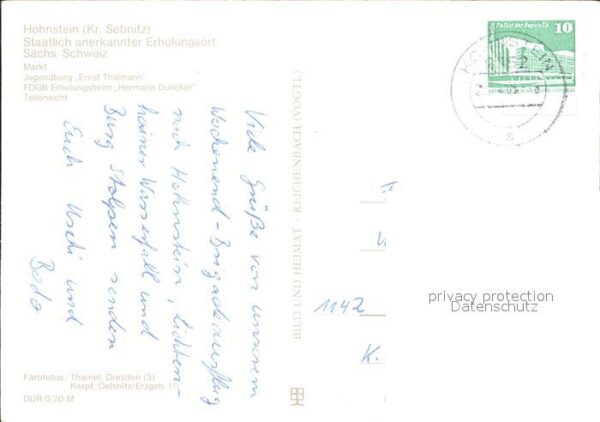 Hohnstein (Kr. Sebnitz)
Staatlich anerkannter Erholungsort
Sächs. Schweiz
Markt
Jugendburg „Ernst Thälmann"
FDGB-Erholungsheim „Hermann Duncker"
Teilansicht
Viele Grüße von unserem
Wochenend-Brigadeausflug
nach Hohnstein, Lichten-
hainer Wasserfall und
Burg Stolpen senden
Euch Uschi und
Bodo
Farbfotos: Thienel, Dresden (3)
Karpf, Oelsnitz/Erzgeb. (1)
DDR 0,20 M
BILD UND HEIMAT · REICHENBACH (VOGTL)
Berlin, Palast der Republik
10
HOHNSTEIN
1142
K.
privacy protection
Datenschutz